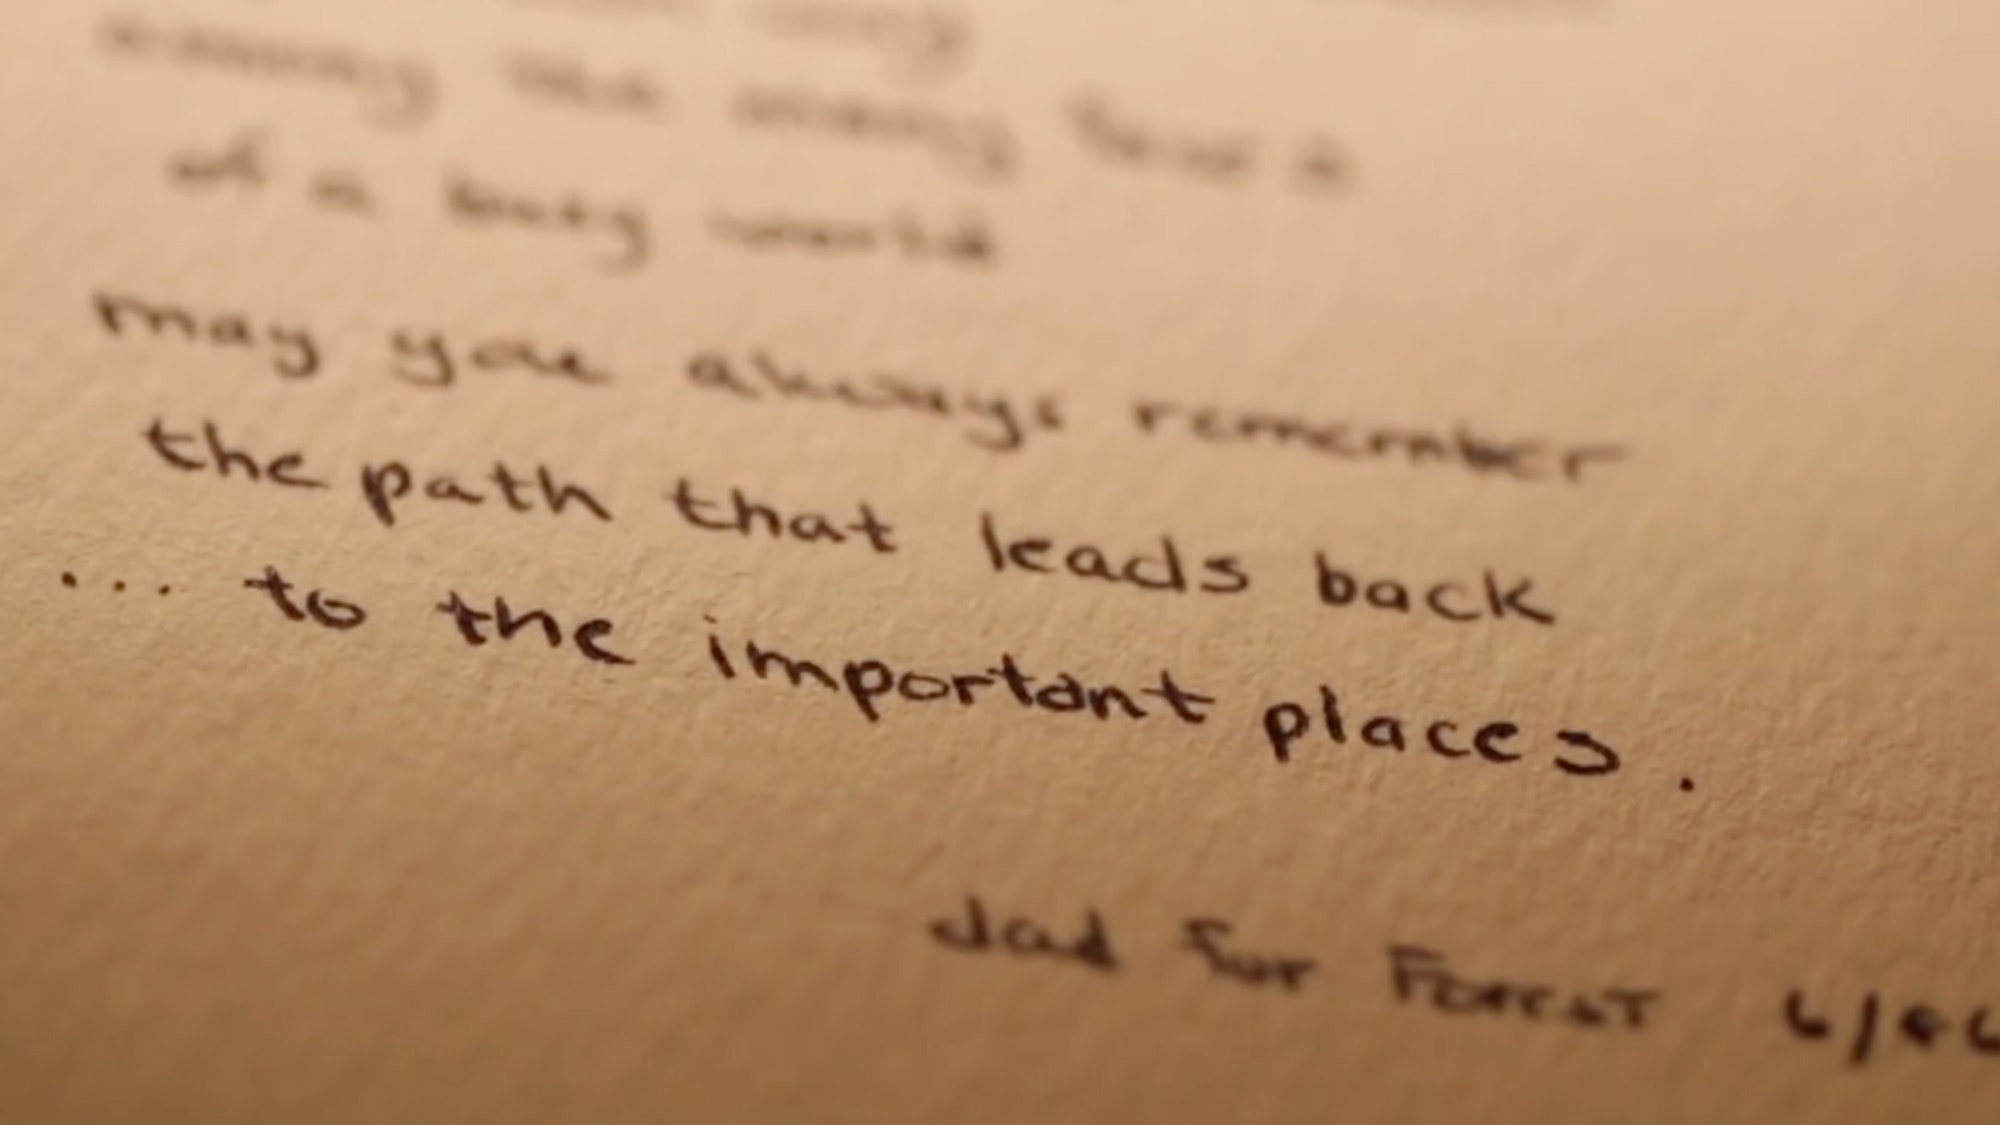 among the many
of a busy world
may you always remember
the path that leads back
... to the important places.
dad for Forest